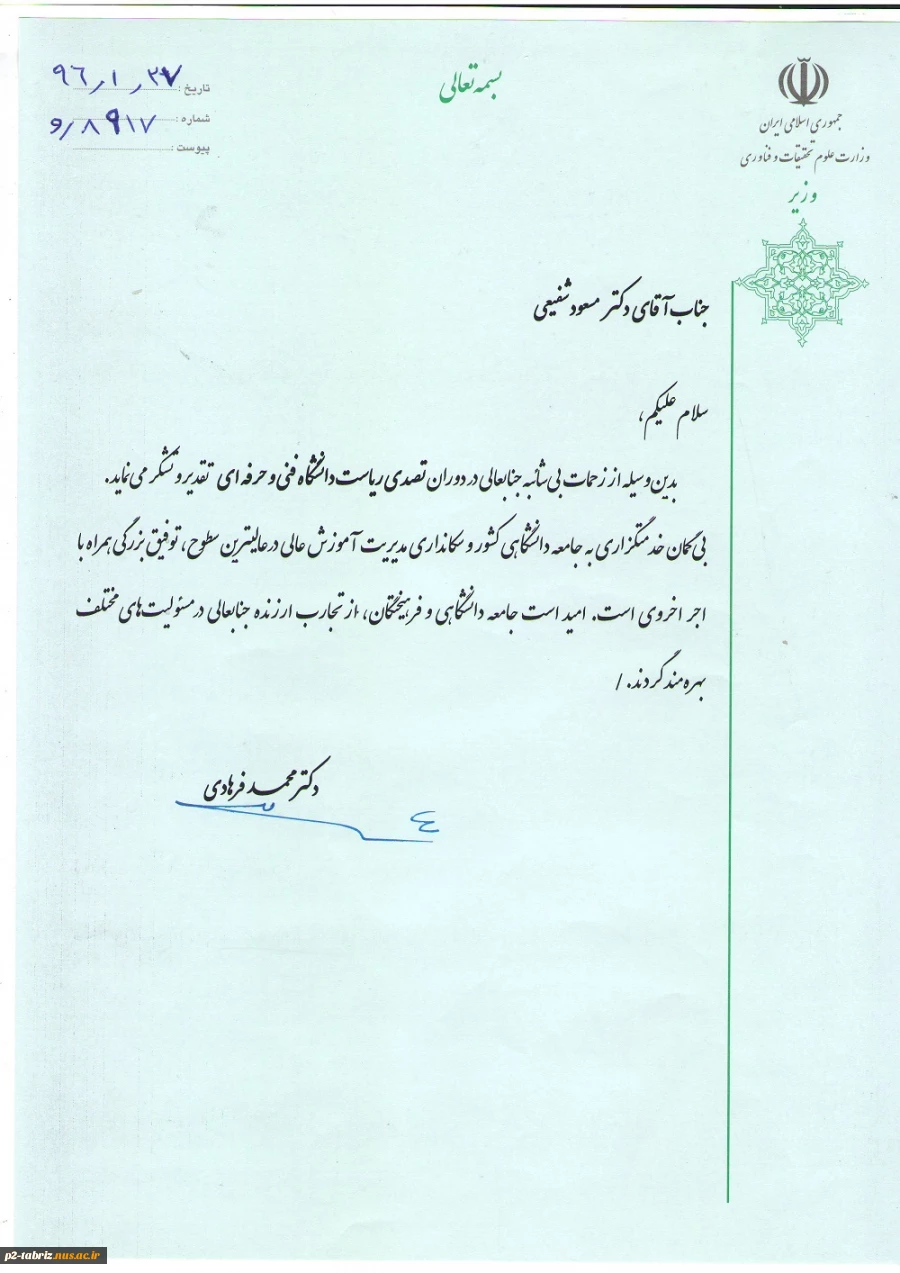 بسمه تعالی
جمهوری اسلامی ایران
وزارت علوم تحقیقات و فناوری
وزیر
تاریخ: ۹۶/۱/۲۷
شماره: و/۸۹۱۷
پیوست:
جناب آقای دکتر مسعود شفیعی
سلام علیکم،
بدین وسیله از زحمات بی شائبه جنابعالی در دوران تصدی ریاست دانشگاه فنی و حرفه ای تقدیر و تشکر می نماید.
بی گمان خدمتگزاری به جامعه دانشگاهی کشور و سکانداری مدیریت آموزش عالی در عالیترین سطوح، توفیق بزرگی همراه با
اجر اخروی است. امید است جامعه دانشگاهی و فرهیختگان، از تجارب ارزنده جنابعالی در مسئولیت های مختلف
بهره مند گردند./
دکتر محمد فرهادی
p2-tabriz.nus.ac.ir